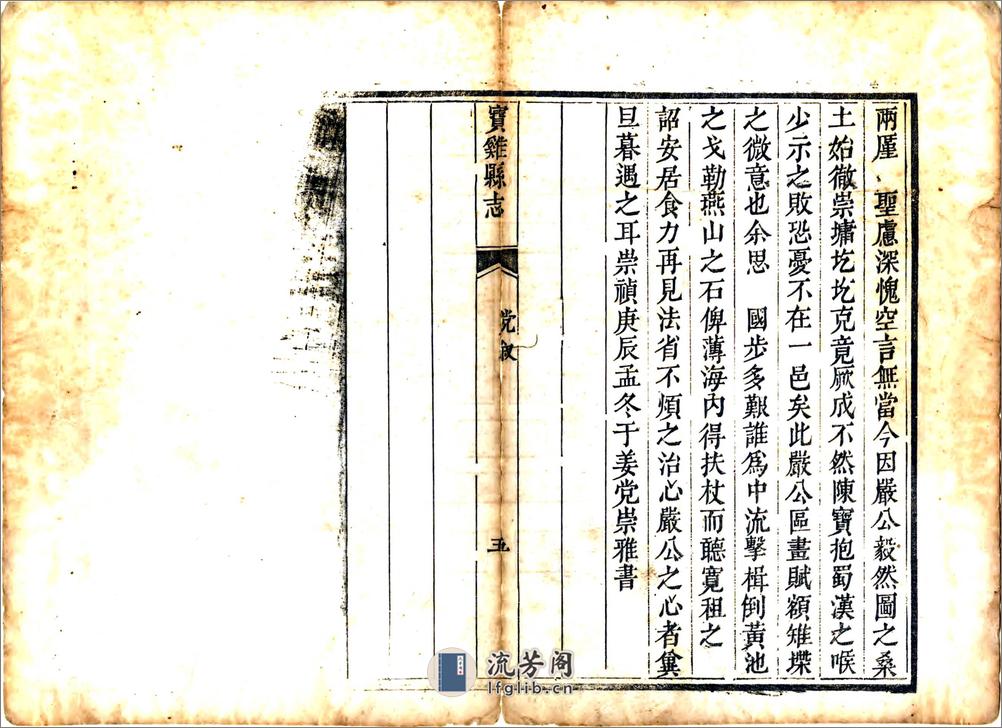 兩厪　聖慮深愧空言無當今因嚴公毅然圖之桑
土始徹崇墉圪圪克竟厥成不然陳寶抱蜀漢之喉
少示之敗恐憂不在一邑矣此嚴公區畫賦額雉堞
之微意也余思　國步多艱誰爲中流擊楫倒黃池
之戈勒燕山之石俾薄海內得扶杖而聽寬租之
詔安居食力再見法省不煩之治心嚴公之心者兾
旦暮遇之耳崇禎庚辰孟冬于姜党崇雅書
寶雞縣志
党叙
五
流芳阁
lfglib.cn